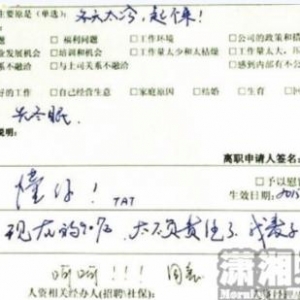 主要原是（单选）： 冬天太冷，起不来！
□ 福利问题 □ 工作环境 □ 公司的政策和措
业发展机会 □ 培训和机会 □ 工作量太少和太枯燥 □ 工作量太大，
系不融洽 □ 与上司关系不融洽 □ 感到内部有不公
好的工作 □ 自己经营生意 □ 家庭原因 □ 结婚 □ 生育 □ 回
天冬眠
说明：
离职申请人签名：
懂你！ TAT
□ 予以慰留
生效日期：2015
现在的90后，太不负责任了
呵呵！！！ 同意
人资相关经办人（招聘/社保）：
潇湘